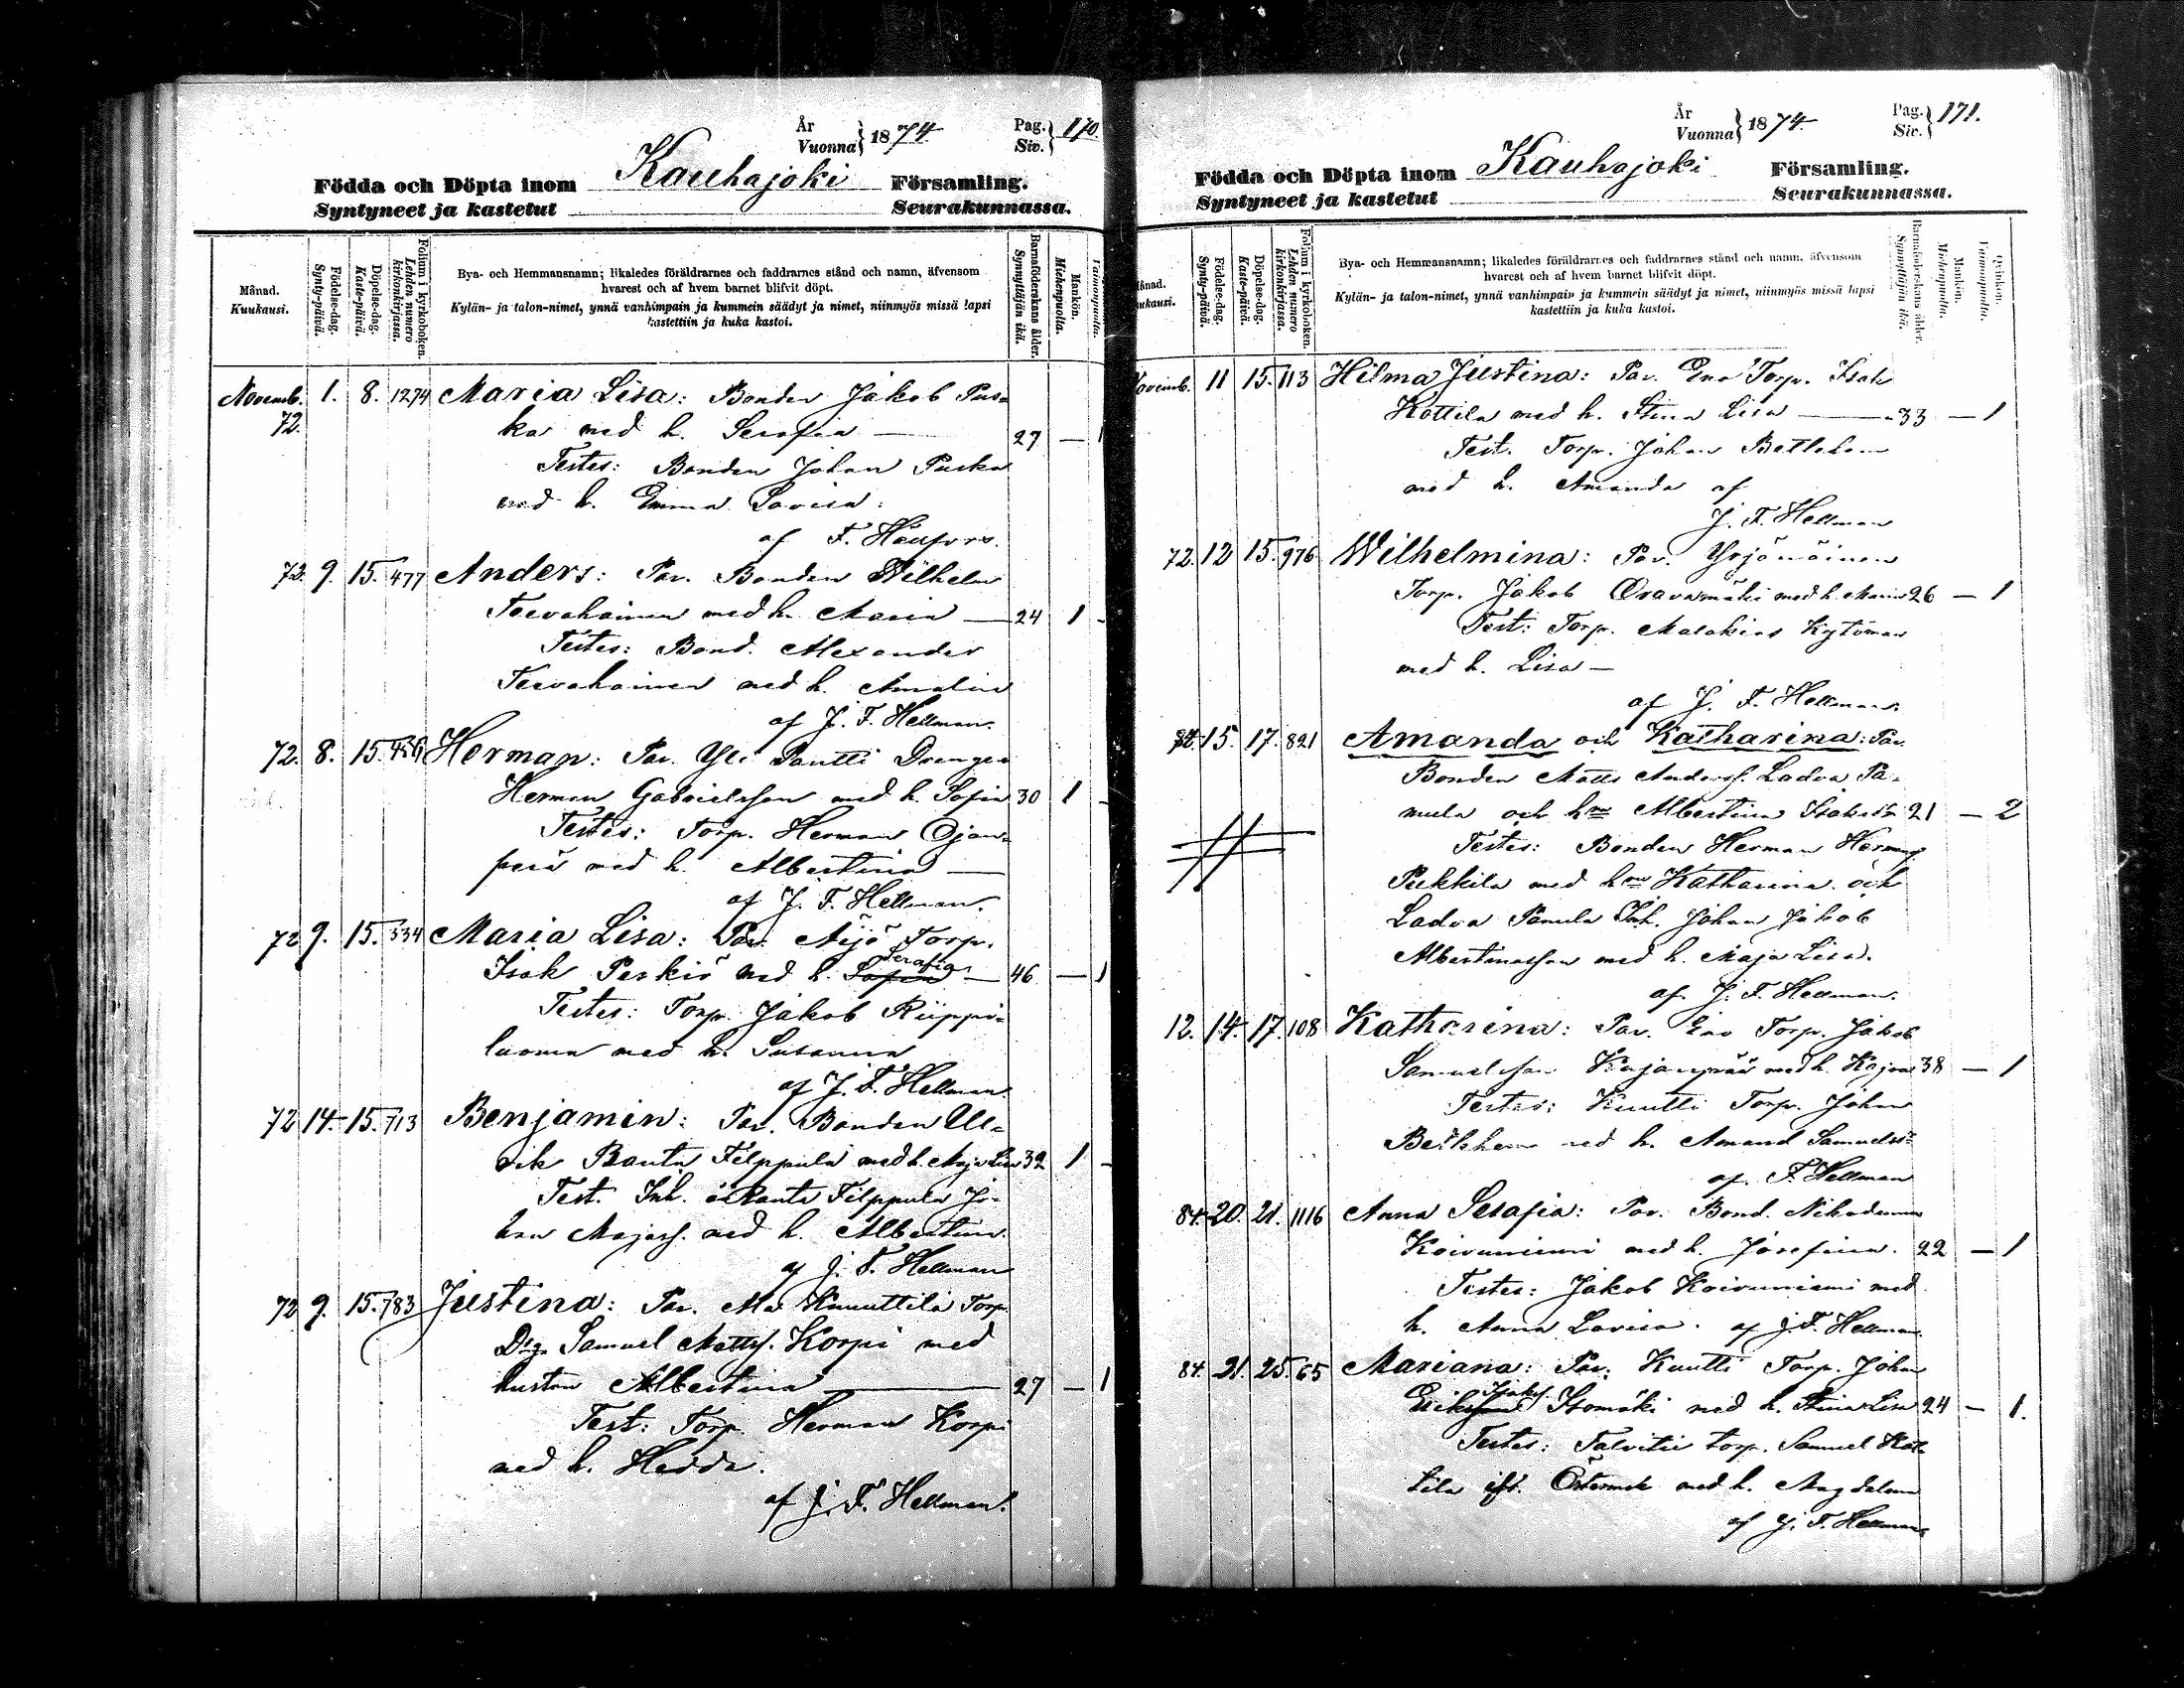 År
Vuonna 1874.
Pag.
Siv. 170.
Födda och Döpta inom Kauhajoki Församling.
Syntyneet ja kastetut Seurakunnassa.
Månad.
Kuukausi.
Födelse-dag.
Synty-päivä.
Döpelse-dag.
Kaste-päivä.
Folium i kyrkoboken.
Lehden numero kirkonkirjassa.
Bya- och Hemmansnamn; likaledes föräldrarnes och faddrarnes stånd och namn, äfvensom
hvarest och af hvem barnet blifvit döpt.
Kylän- ja talon-nimet, ynnä vanhimpain ja kummein säädyt ja nimet, niinmyös missä lapsi
kastettiin ja kuka kastoi.
Barnaföderskans ålder.
Synnyttäjän ikä.
Mankön.
Miehenpuolia.
Vaimonpuolia.
Novemb. 1. 8. 1274 Maria Lisa: Bonden Jakob Pus-
72. ka med h. Serafia — 27 — 1
Testes: Bonden Johan Puska
med h. Emma Lovisa:
af F. Häufors.
72. 9. 15. 477 Anders: Par. Bonden Wilhelm
Teevahainen med h. Maria — 24 1 -
Testes: Bond. Alexander
Teevahainen med h. Amalia
af J. F. Hellman.
72. 8. 15. 456 Herman: Par. Yli Pantti Drengen
Herman Gabrielsson med h. Sofia 30 1 -
Testes: Torp. Herman Ojan-
perä med h. Albertina —
af J. F. Hellman.
72 9. 15. 534 Maria Lisa: Par. Äijö Torp.
Serafia
Isak Perkiö med h. Sofia — 46 — 1
Testes: Torp. Jakob Riippi-
luoma med h. Susanna
af J. F. Hellman.
72 14. 15. 713 Benjamin: Par. Bonden Ul-
rik Ranta Filppula med h. Maja Lisa 32 1 -
Test. Inh. å Ranta Filppula Jo-
han Majass. med h. Albertina.
af J. F. Hellman
72 9. 15. 783 Justina: Par. Ala Knuuttila Torp.
Dr. Samuel Mattss. Korpi med
hustru Albertina — 27 — 1
Test: Torp. Herman Korpi
med h. Hedda.
af J. F. Hellman.
År
Vuonna 1874.
Pag.
Siv. 171.
Födda och Döpta inom Kauhajoki Församling.
Syntyneet ja kastetut Seurakunnassa.
Månad.
Kuukausi.
Födelse-dag.
Synty-päivä.
Döpelse-dag.
Kaste-päivä.
Folium i kyrkoboken.
Lehden numero kirkonkirjassa.
Bya- och Hemmansnamn; likaledes föräldrarnes och faddrarnes stånd och namn, äfvensom
hvarest och af hvem barnet blifvit döpt.
Kylän- ja talon-nimet, ynnä vanhimpain ja kummein säädyt ja nimet, niinmyös missä lapsi
kastettiin ja kuka kastoi.
Barnaföderskans ålder.
Synnyttäjän ikä.
Mankön.
Miehenpuolia.
Qvinkön.
Vaimonpuolia.
Novemb. 11 15. 113 Hilma Justina: Par. Eno Torp. Isak
Kottila med h. Stina Lisa — 33 — 1
Test. Torp. Johan Betlehem
med h. Amanda af
J. F. Hellman
72. 12 15. 976 Wilhelmina: Par. Yrjänäinen
Torp. Jakob Oravamäki med h. Maria 26 — 1
Test: Torp. Malakias Kytöman
med h. Lisa —
af J. F. Hellman.
15. 17. 821 Amanda och Katharina: Par.
Bonden Matts Anderss. Ladva Pa-
mula och hu Albertina Isaksdr 21 — 2
Testes: Bonden Herman Hermanss.
Pukkila med hu Katharina och
Ladva Pamula Inh. Johan Jakob
Albertinasson med h. Maja Lisa.
af J. F. Hellman.
12. 14. 17. 108 Katharina: Par. Eno Torp. Jakob
Samuelsson Kujanpää med h. Kajsa 38 — 1
Testes: Knutti Torp. Johan
Betlehem med h. Amand Samuelsdr
af F. Hellman
84. 20. 21. 1116 Anna Serafia: Par. Bond. Nikodemus
Koivuniemi med h. Josefina. 22 — 1
Testes: Jakob Koivuniemi med
h. Anna Lovisa. af J. F. Hellman.
84. 21. 25. 65 Mariana: Par. Knutti Torp. Johan
Isaks.
Eriksson Isomäki med h. Stina Lisa 24 — 1.
Testes: Talvitie torp. Samuel Kot-
tila ifr. Östermark med h. Magdalena
af J. F. Hellman